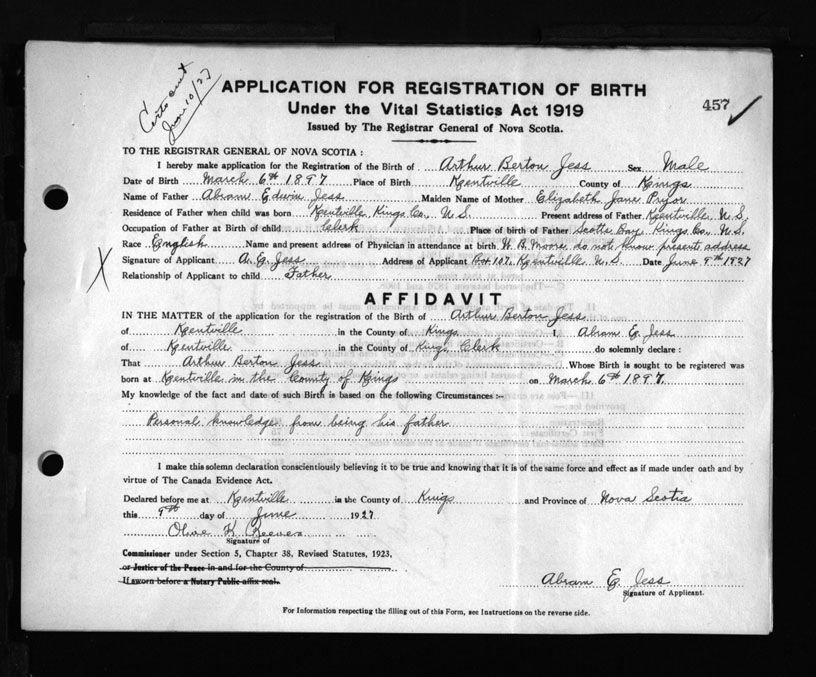 Certs sent
June 10/27
APPLICATION FOR REGISTRATION OF BIRTH
Under the Vital Statistics Act 1919
457
Issued by The Registrar General of Nova Scotia.
TO THE REGISTRAR GENERAL OF NOVA SCOTIA :
I hereby make application for the Registration of the Birth of Arthur Berton Jess Sex Male
Date of Birth March 6th 1897 Place of Birth Kentville County of Kings
Name of Father Abram Edwin Jess Maiden Name of Mother Elizabeth Jane Pryor
Residence of Father when child was born Kentville Kings Co., N.S. Present address of Father Kentville N.S.
Occupation of Father at Birth of child Clerk Place of birth of Father Scotts Bay, Kings Co., N.S.
Race English Name and present address of Physician in attendance at birth W. B. Moore do not know present address
Signature of Applicant A. E. Jess Address of Applicant Box 107, Kentville N.S. Date June 9th 1927
X
Relationship of Applicant to child Father
AFFIDAVIT
IN THE MATTER of the application for the registration of the Birth of Arthur Berton Jess
of Kentville in the County of Kings I, Abram E. Jess
of Kentville in the County of Kings, Clerk do solemnly declare :
That Arthur Berton Jess Whose Birth is sought to be registered was
born at Kentville in the County of Kings on March 6th 1897.
My knowledge of the fact and date of such Birth is based on the following Circumstances :-
Personal knowledge from being his father
I make this solemn declaration conscientiously believing it to be true and knowing that it is of the same force and effect as if made under oath and by
virtue of The Canada Evidence Act.
Declared before me at Kentville in the County of Kings and Province of Nova Scotia
this 9th day of June 1927
Olive K Reeves
Signature of
Commissioner under Section 5, Chapter 38, Revised Statutes, 1923.
or Justice of the Peace in and for the County of
If sworn before a Notary Public affix seal.
Abram E. Jess
Signature of Applicant.
For Information respecting the filling out of this Form, see Instructions on the reverse side.